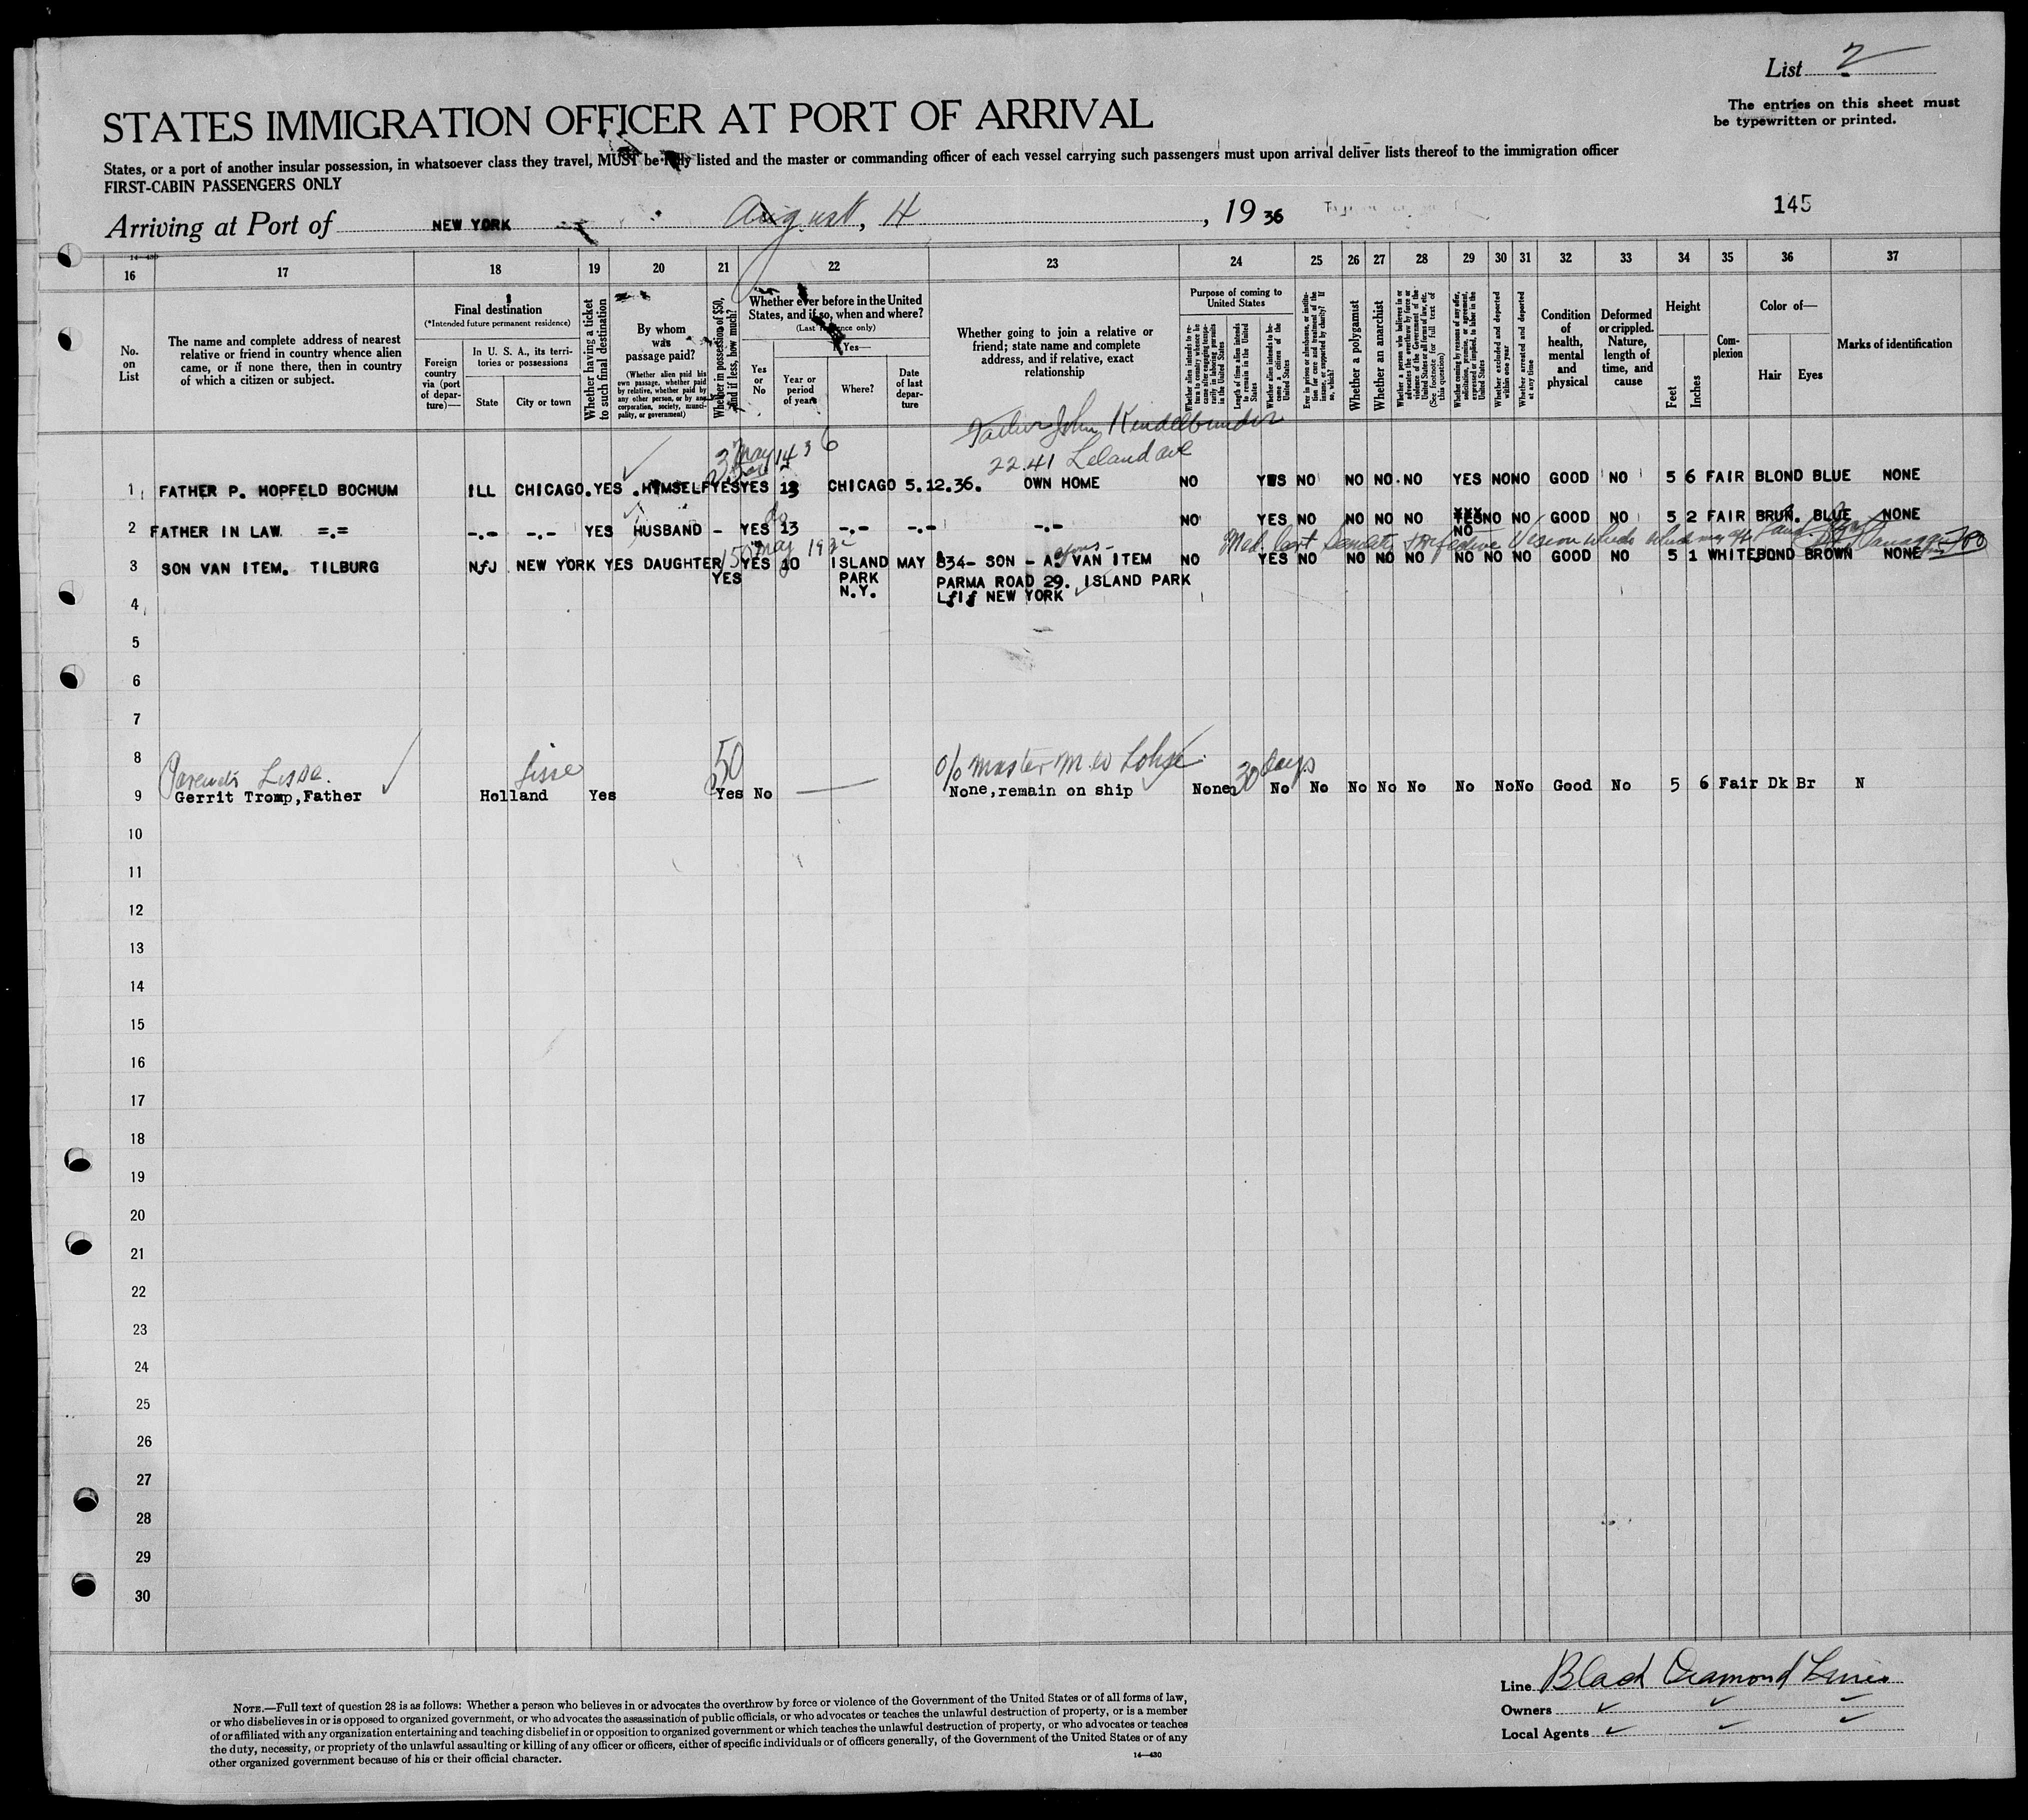 List 2
The entries on this sheet must
be typewritten or printed.
STATES IMMIGRATION OFFICER AT PORT OF ARRIVAL
States, or a port of another insular possession, in whatsoever class they travel, MUST be fully listed and the master or commanding officer of each vessel carrying such passengers must upon arrival deliver lists thereof to the immigration officer
FIRST-CABIN PASSENGERS ONLY
Arriving at Port of NEW YORK August, 4, 1936
145
14—430
16 17 18 19 20 21 22 23 24 25 26 27 28 29 30 31 32 33 34 35 36 37
No. on List
The name and complete address of nearest relative or friend in country whence alien came, or if none there, then in country of which a citizen or subject.
Final destination
(*Intended future permanent residence)
Foreign country via (port of departure)—
In U. S. A., its territories or possessions
State
City or town
Whether having a ticket to such final destination
By whom was passage paid?
(Whether alien paid his own passage, whether paid by relative, whether paid by any other person, or by any corporation, society, municipality, or government)
Whether in possession of $50, and if less, how much?
Whether ever before in the United States, and if so, when and where?
(Last residence only)
Yes or No
Yes—
Year or period of years
Where?
Date of last departure
Whether going to join a relative or friend; state name and complete address, and if relative, exact relationship
Purpose of coming to United States
Whether alien intends to return to country whence he came after engaging temporarily in laboring pursuits in the United States
Length of time alien intends to remain in the United States
Whether alien intends to become a citizen of the United States
Ever in prison or almshouse, or institution for care and treatment of the insane, or supported by charity? If so, which?
Whether a polygamist
Whether an anarchist
Whether a person who believes in or advocates the overthrow by force or violence of the Government of the United States or all forms of law, etc. (See footnote for full text of this question)
Whether coming by reasons of any offer, solicitation, promise, or agreement, expressed or implied, to labor in the United States
Whether excluded and deported within one year
Whether arrested and deported at any time
Condition of health, mental and physical
Deformed or crippled. Nature, length of time, and cause
Height
Feet
Inches
Complexion
Color of—
Hair
Eyes
Marks of identification
Father John Kindelbinder
May 14 36
22.41 Leland ave
1 FATHER P. HOPFELD BOCHUM ILL CHICAGO. YES HIMSELF YES YES 13 CHICAGO 5.12.36. OWN HOME NO YES NO NO NO NO YES NO NO GOOD NO 5 6 FAIR BLOND BLUE NONE
do
2 FATHER IN LAW =.= -.- -.- YES HUSBAND - YES 13 -.- -.- -.- NO YES NO NO NO NO YES NO NO NO GOOD NO 5 2 FAIR BRUN. BLUE NONE
150 May 193
3 SON VAN ITEM. TILBURG N.J NEW YORK YES DAUGHTER YES YES 10 ISLAND PARK N.Y. MAY 834- SON - A. VAN ITEM NO YES NO NO NO NO NO NO NO GOOD NO 5 1 WHITE BOND BROWN NONE
PARMA ROAD 29. ISLAND PARK
L.I. NEW YORK
4
5
6
7
8
Parents Lisse. Lisse 50 c/o master M.W. 30 days
9 Gerrit Tromp,Father Holland Yes Yes No None,remain on ship None No No No No No No No No Good No 5 6 Fair Dk Br N
10
11
12
13
14
15
16
17
18
19
20
21
22
23
24
25
26
27
28
29
30
Line Black Diamond Lines
Owners
Local Agents
NOTE.—Full text of question 28 is as follows: Whether a person who believes in or advocates the overthrow by force or violence of the Government of the United States or of all forms of law,
or who disbelieves in or is opposed to organized government, or who advocates the assassination of public officials, or who advocates or teaches the unlawful destruction of property, or is a member
of or affiliated with any organization entertaining and teaching disbelief in or opposition to organized government or which teaches the unlawful destruction of property, or who advocates or teaches
the duty, necessity, or propriety of the unlawful assaulting or killing of any officer or officers, either of specific individuals or of officers generally, of the Government of the United States or of any
other organized government because of his or their official character.
14—430